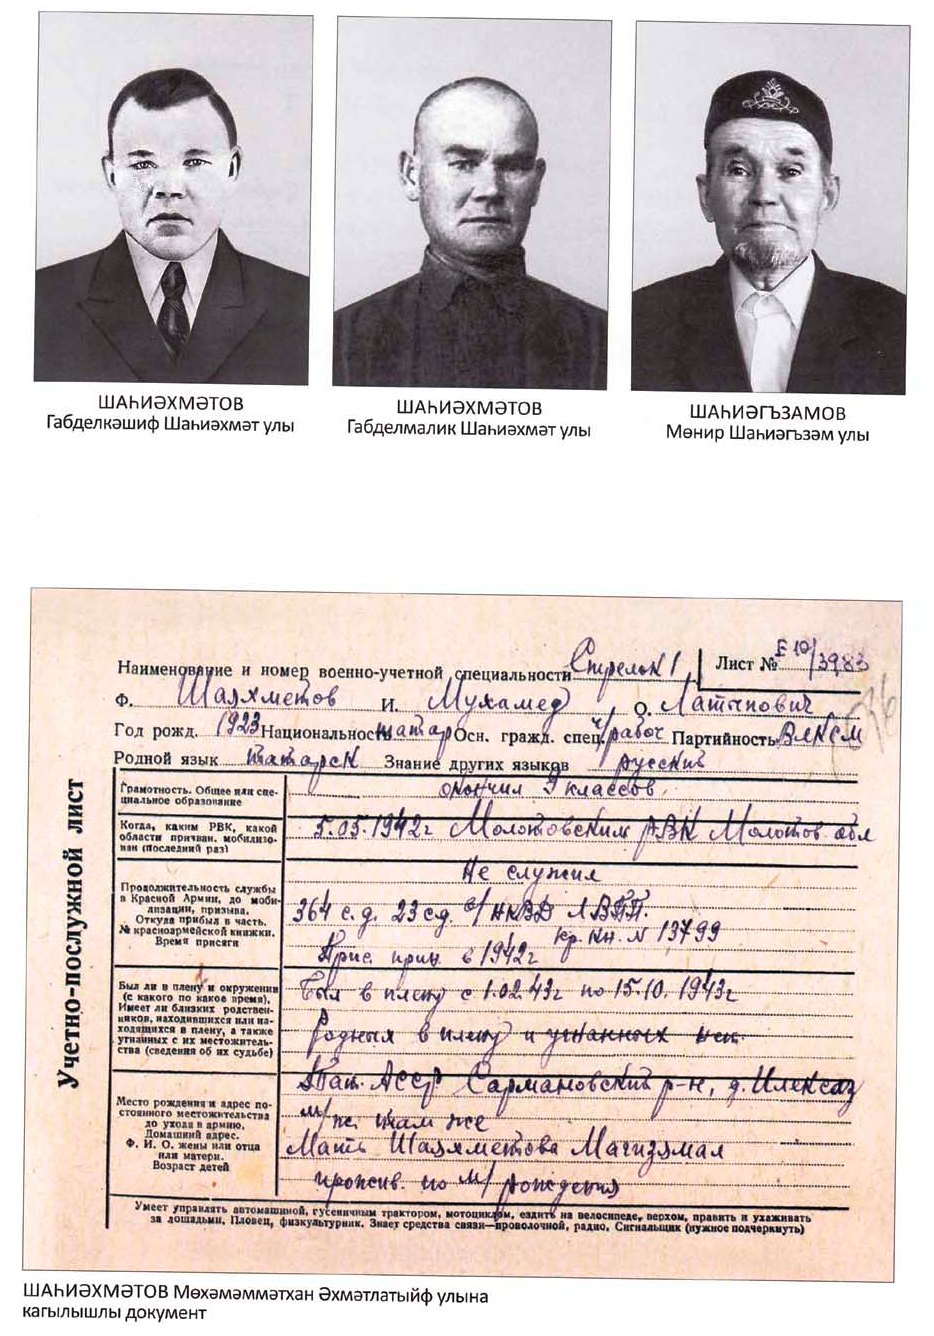 ШАҺИӘХМӘТОВ
Габделкәшиф Шаһиәхмәт улы
ШАҺИӘХМӘТОВ
Габделмалик Шаһиәхмәт улы
ШАҺИӘГЪЗАМОВ
Мөнир Шаһиәгъзәм улы
Наименование и номер военно-учетной специальности Стрелок 1
Лист № 3983
Ф. Шаяхметов И. Мухамед О. Латыпович
Год рожд. 1923 Национальность татар Осн. гражд. спец. ч/рабоч Партийность ВЛКСМ
Родной язык татарск Знание других языков русский
Учетно-послужной лист
Грамотность. Общее или спе-
циальное образование
окончил 9 классов.
Когда, каким РВК, какой
области призван. мобилизо-
ван (последний раз)
5.05.1942г Молотовским РВК Молотов. обл
Продолжительность службы
в Красной Армии, до моби-
лизации, призыва.
Откуда прибыл в часть.
№ красноармейской книжки.
Время присяги
Не служил
364 с.д. 23 сд. НКВД ЛВПП.
кр. кн. N 13799
Прис. прин. в 1942г
Был ли в плену и окружении
(с какого по какое время).
Имеет ли близких родствен-
ников, находившихся или на-
ходящихся в плену, а также
угнанных с их местожитель-
ства (сведения об их судьбе)
Был в плену с 1.02.43г по 15.10.1943г
Родных в плену и угнанных нет
Место рождения и адрес по-
стоянного местожительства
до ухода в армию.
Домашний адрес.
Ф. И. О. жены или отца
или матери.
Возраст детей
Тат. АССР Сармановский р-н, д. Илексаз
м/ж. там же
Мать Шаяхметова Магизямал
прожив. по м/рождения
Умеет управлять автомашиной, гусеничным трактором, мотоциклом, ездить на велосипеде, верхом, править и ухаживать
за лошадьми. Пловец, физкультурник. Знает средства связи—проволочной, радио. Сигнальщик (нужное подчеркнуть)
ШАҺИӘХМӘТОВ Мөхәмәммәтхан Әхмәтлатыйф улына
кагылышлы документ